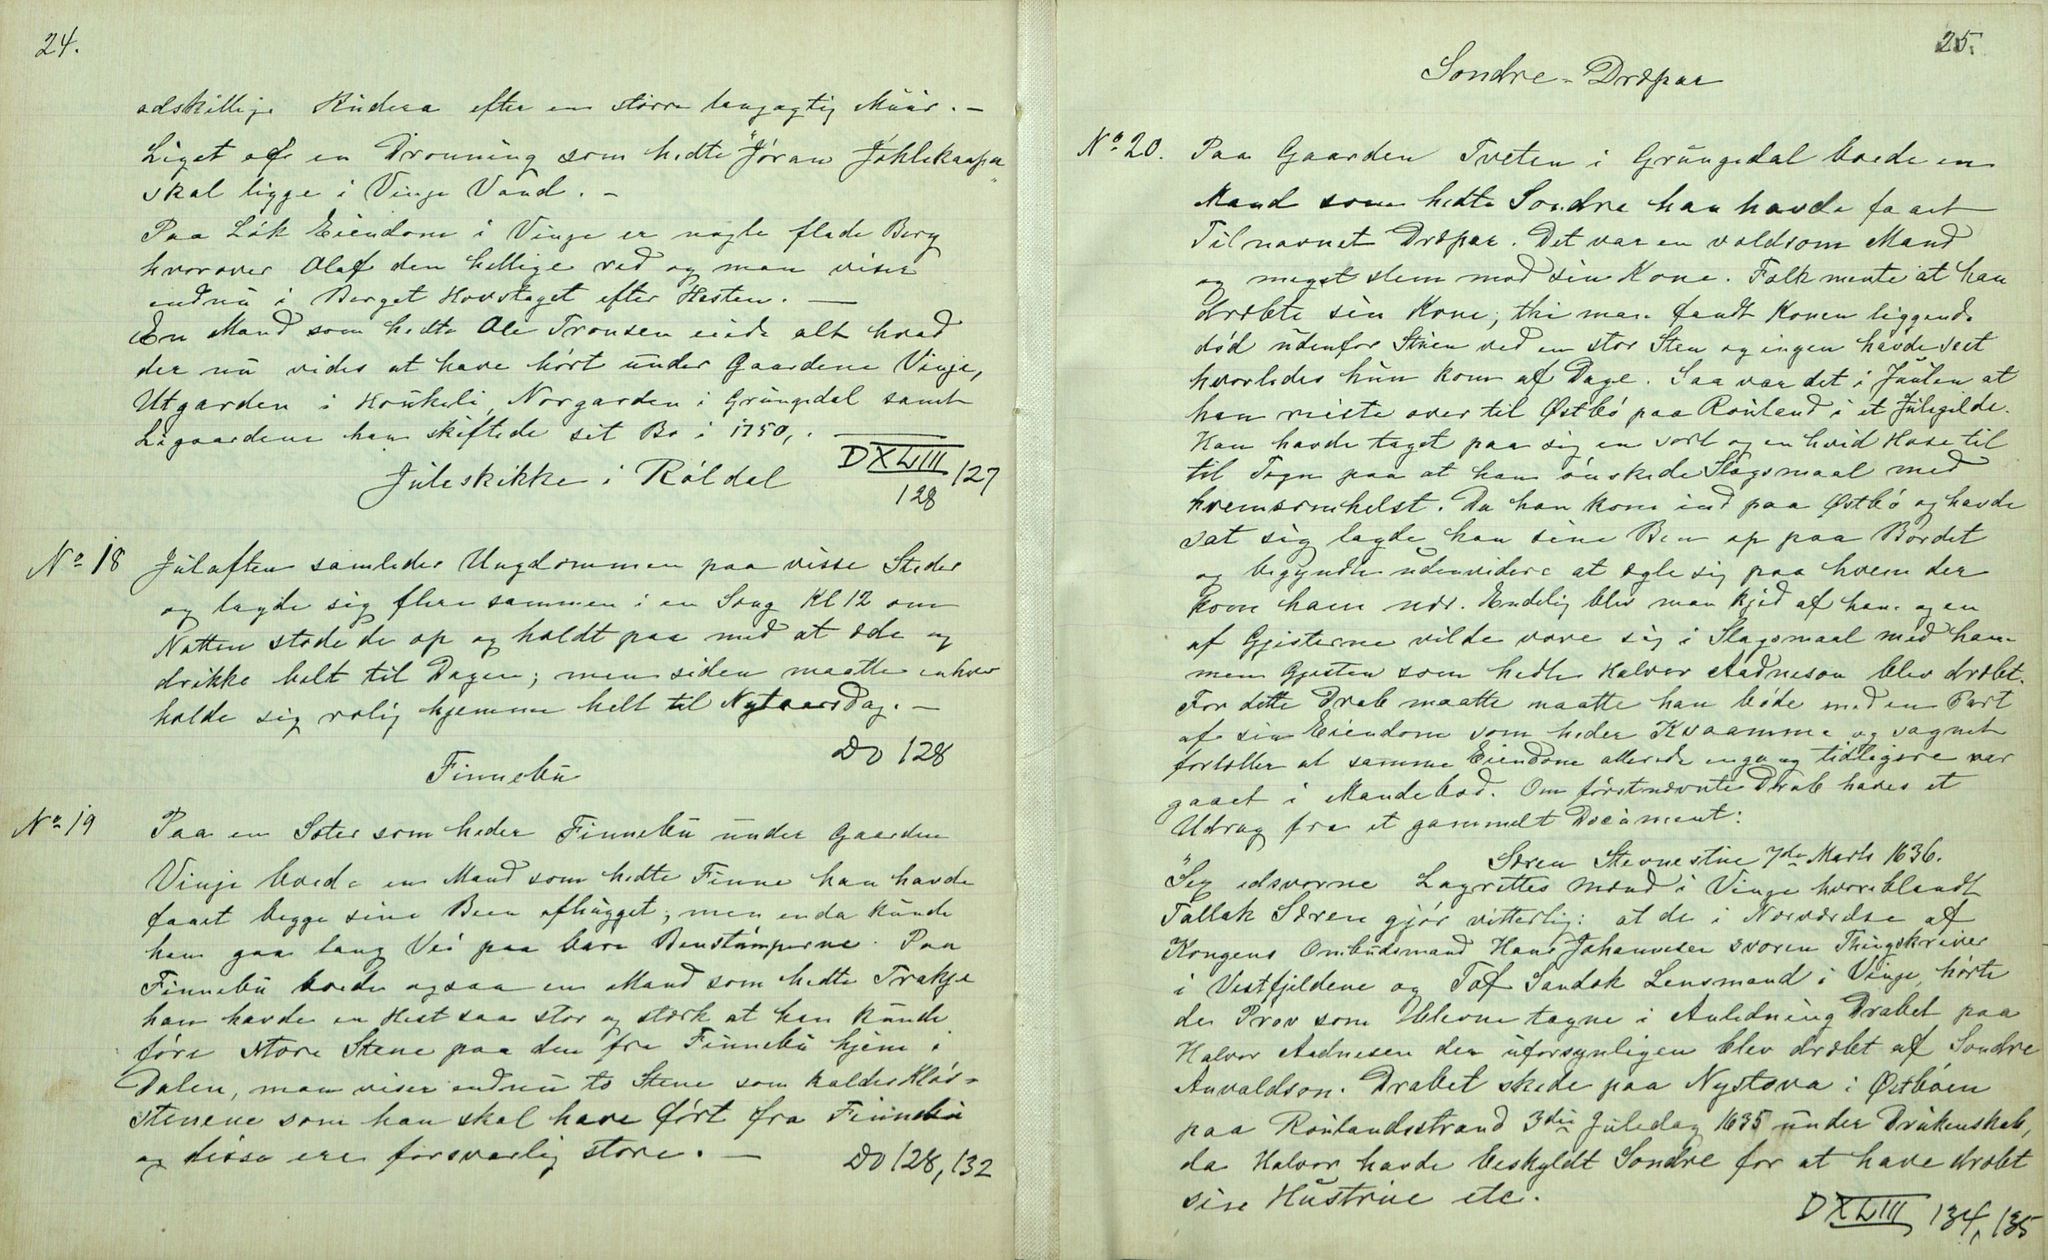 24.
adskillige Ruderne efter en större langagtig Muur. —
Liget af en Dronning som hedte "Jöran Jöklekaapa"
skal ligge i Vinje Vand. —
Paa Lök Eiendom i Vinje er nogle flade Berg
hvorover Olaf den hellige red og man viser
endnu i Berget Hovslaget efter Hesten. —
En Mand som hedte Ole Tronsen eiede alt hvad
der nu vides at have hört under Gaardene Vinje,
Utgarden i Houkeli, Norgarden i Grungedal samt
Ligaardene han skiftede sit Bo i 1750,.
DXLIII 127
128
Juleskikke i Röldal
No 18 Julaften samledes Ungdommen paa visse Steder
og lagde sig flere sammen i en Seng Kl 12 om
Natten stode de op og holdt paa med at æde og
drikke helt til Dagen; men siden maatte enhver
holde sig rolig hjemme helt til Nytaarsdag. —
Do 128
Finnebu
No 19 Paa en Sæter som heder Finnebu under Gaarden
Vinje boede en Mand som hedte Finne han havde
faaet begge sine Been afhugget; men enda kunde
han gaa lang Vei paa bare Benstumperne. Paa
Finnebu boede ogsaa en Mand som hedte Trakje
han havde en Hest saa stor og stærk at han kunde
före store Stene paa den fra Finnebu hjem i
Dalen, man viser endnu to Stene som kaldes Klös-
stenene som han skal have fört fra Finnebu
og disse ere forsvarlig store. —
Do 128, 132
25.
Sondre-Dræpar
No 20. Paa Gaarden Tveten i Grungedal boede en
Mand som hedte Sondre han havde faaet
Tilnavnet Dræpar. Det var en voldsom Mand
og meget slem mod sin Kone. Folk mente at han
dræbte sin Kone; thi man fandt Konen liggende
död udenfor Stuen ved en stor Sten og ingen havde seet
hvorledes hun kom af Dage. Saa var det i Julen at
han reiste over til Østbö paa Rouland i et Julegilde.
Han havde taget paa sig en sort og en hvid Hose til
til Tegn paa at han önskede Slagsmaal med
hvemsomhelst. Da han kom ind paa Østbö og havde
sat sig lagde han sine Ben op paa Bordet
og begyndte udenvidere at egle sig paa hvem der
kom ham nær. Endelig blev man kjed af ham og en
af Gjesterne vilde vove sig i Slagsmaal med ham
men Gjesten som hedte Halvor Aadneson blev dræbt.
For dette Drab maatte maatte han böde med en Part
af sin Eiendom som heder Kvaamme og sagnet
fortæller at samme Eiendom allerede engang tidligere var
gaaet i Mandebod. Om förstnævnte Drab haves et
Udrag fra et gammelt Document:
Særen Stevnestue 7de Marts 1636.
"Sex edsvorne Lagrettes Mænd i Vinge hvoriblandt
Tallak Særen gjör vitterlig: at de i Nærværelse af
Kongens Ombudsmand Hans Johannesen svoren Thingskriver
i Vestfjeldene og Tof Sandok Lensmand i Vinje, hörte
de Prov som blevne tagne i Anledning Drabet paa
Halvor Aadnesen der uforsynligen blev dræbt af Sondre
Anvaldson. Drabet skede paa Nystova i Østböen
paa Roulandsstrand 3die Juledag 1635 under Drukenskab,
da Halvor havde beskyldt Sondre for at have dræbt
sin Hustrue etc.
DXLIII 134, 135